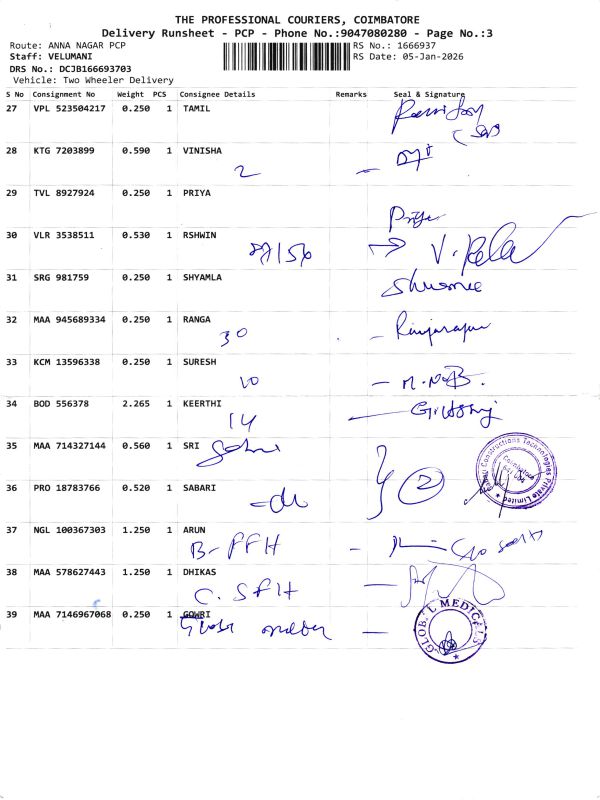 THE PROFESSIONAL COURIERS, COIMBATORE
Delivery Runsheet - PCP - Phone No.:9047080280 - Page No.:3
Route: ANNA NAGAR PCP RS No.: 1666937
Staff: VELUMANI RS Date: 05-Jan-2026
DRS No.: DCJB166693703
Vehicle: Two Wheeler Delivery
S No Consignment No Weight PCS Consignee Details Remarks Seal & Signature
27 VPL 523504217 0.250 1 TAMIL
28 KTG 7203899 0.590 1 VINISHA
2
29 TVL 8927924 0.250 1 PRIYA
Priya
30 VLR 3538511 0.530 1 RSHWIN
31 SRG 981759 0.250 1 SHYAMLA
32 MAA 945689334 0.250 1 RANGA
30
33 KCM 13596338 0.250 1 SURESH
10
34 BOD 556378 2.265 1 KEERTHI
14
35 MAA 714327144 0.560 1 SRI
Constructions Technologies Private Limited
Coimbatore
36 PRO 18783766 0.520 1 SABARI
2
37 NGL 100367303 1.250 1 ARUN
B- FFH
38 MAA 578627443 1.250 1 DHIKAS
C. SFH
39 MAA 7146967068 0.250 1 GOWRI
GLOBAL MEDICALS